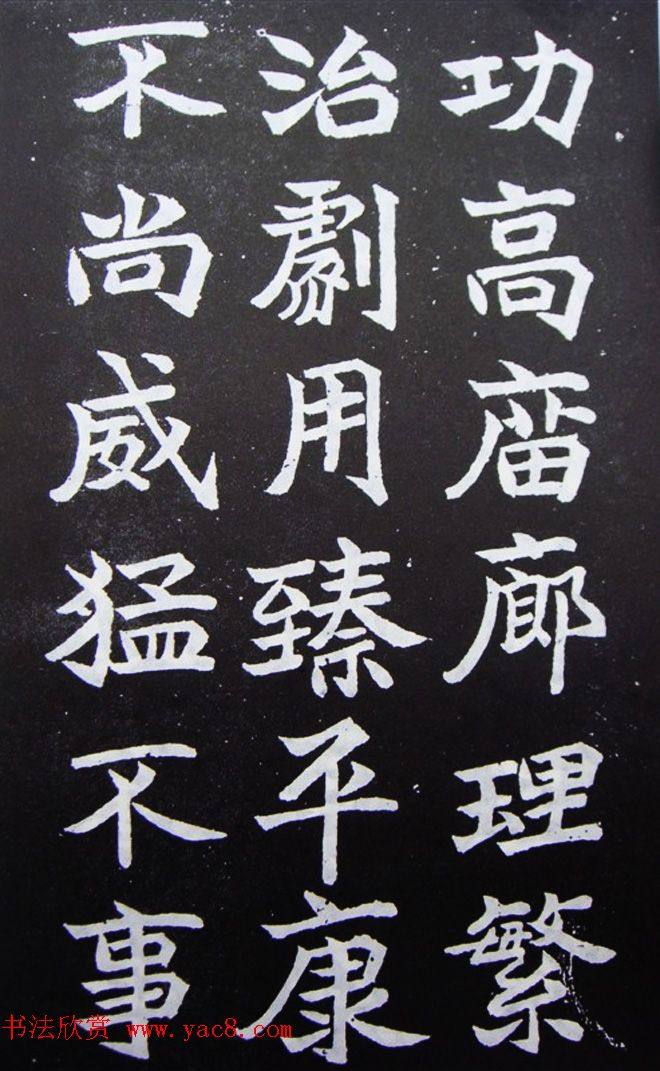 功高庿廊理繁
治劇用臻平康
不尚威猛不事
书法欣赏 www.yac8.com